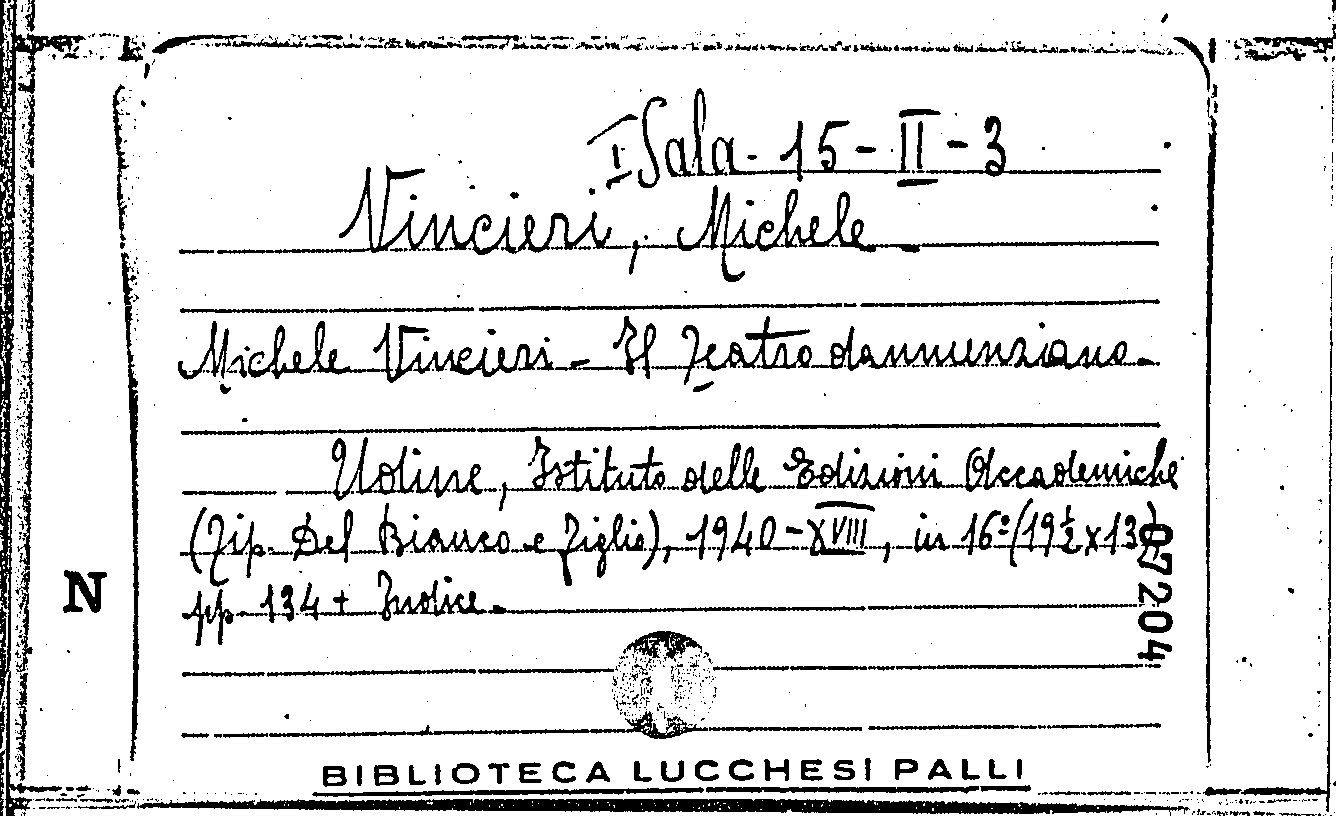 I Sala - 15 - II - 3
Vincieri, Michele -
Michele Vincieri - Il Teatro dannunziano -
Udine, Istituto delle Edizioni Accademiche
(Tip. Del Bianco e Figlio), 1940 - XVIII, in 16º (19½ x 13)
pp. 134 + Indice. -
N
07204
BIBLIOTECA LUCCHESI PALLI